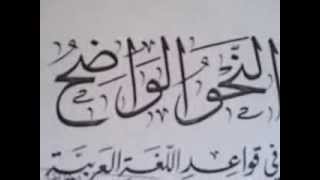 النَّحْوُ الْوَاضِحُ
فى قواعدِ اللّغةِ العربيّةِ